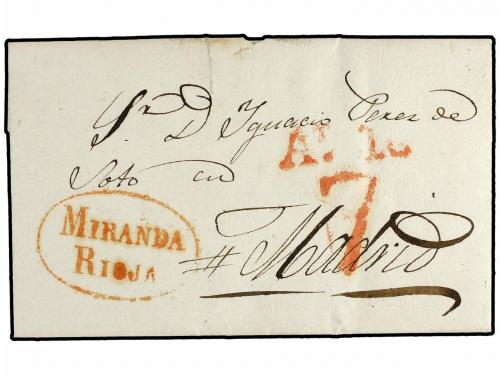 Sr. D. Ignacio Perez de
Soto en
7
Madrid
MIRANDA
RIOJA